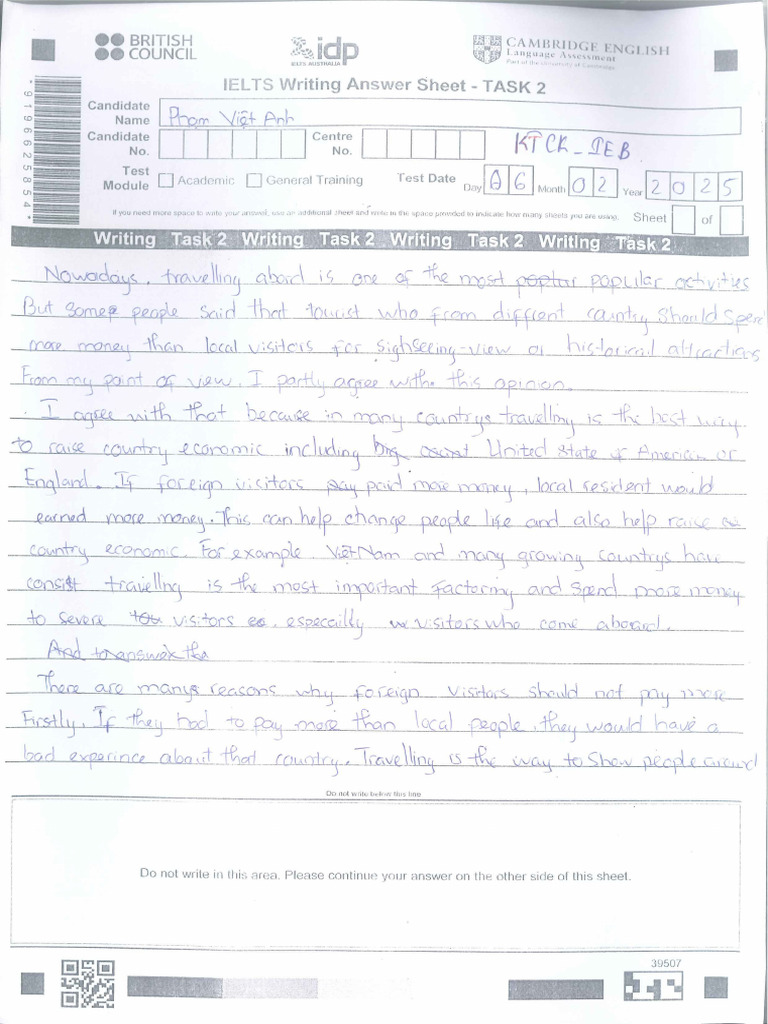 BRITISH COUNCIL
idp
IELTS AUSTRALIA
CAMBRIDGE ENGLISH
Language Assessment
Part of the University of Cambridge
IELTS Writing Answer Sheet - TASK 2
*9196625854*
Candidate Name Phạm Việt Anh
Candidate No. Centre No. KTCK_IEB
Test Module Academic General Training Test Date Day 06 Month 02 Year 2025
If you need more space to write your answer, use an additional sheet and write in the space provided to indicate how many sheets you are using. Sheet of
Writing Task 2 Writing Task 2 Writing Task 2 Writing Task 2
Nowadays, travelling abord is one of the most popular activities
But some people said that tourist who from diffrent country should spend
more money than local visitors for sighseeing-view or historical attractions
From my point of view, I partly agree with this opinion.
I agree with that because in many countrys travelling is the best way
to raise country economic including United State of American or
England. If foreign visitors paid more money, local resident would
earned more money. This can help change people life and also help raise
country economic. For example, Việt Nam and many growing countrys have
consist travelling is the most important factoring and spend more money
to severe visitors especailly visitors who come aboard.
And to answer the
There are manys reasons why foreign visitors should not pay more
Firstly, If they had to pay more than local people, they would have a
bad experince about that country. Travelling is the way to show people around
Do not write below this line
Do not write in this area. Please continue your answer on the other side of this sheet.
39507